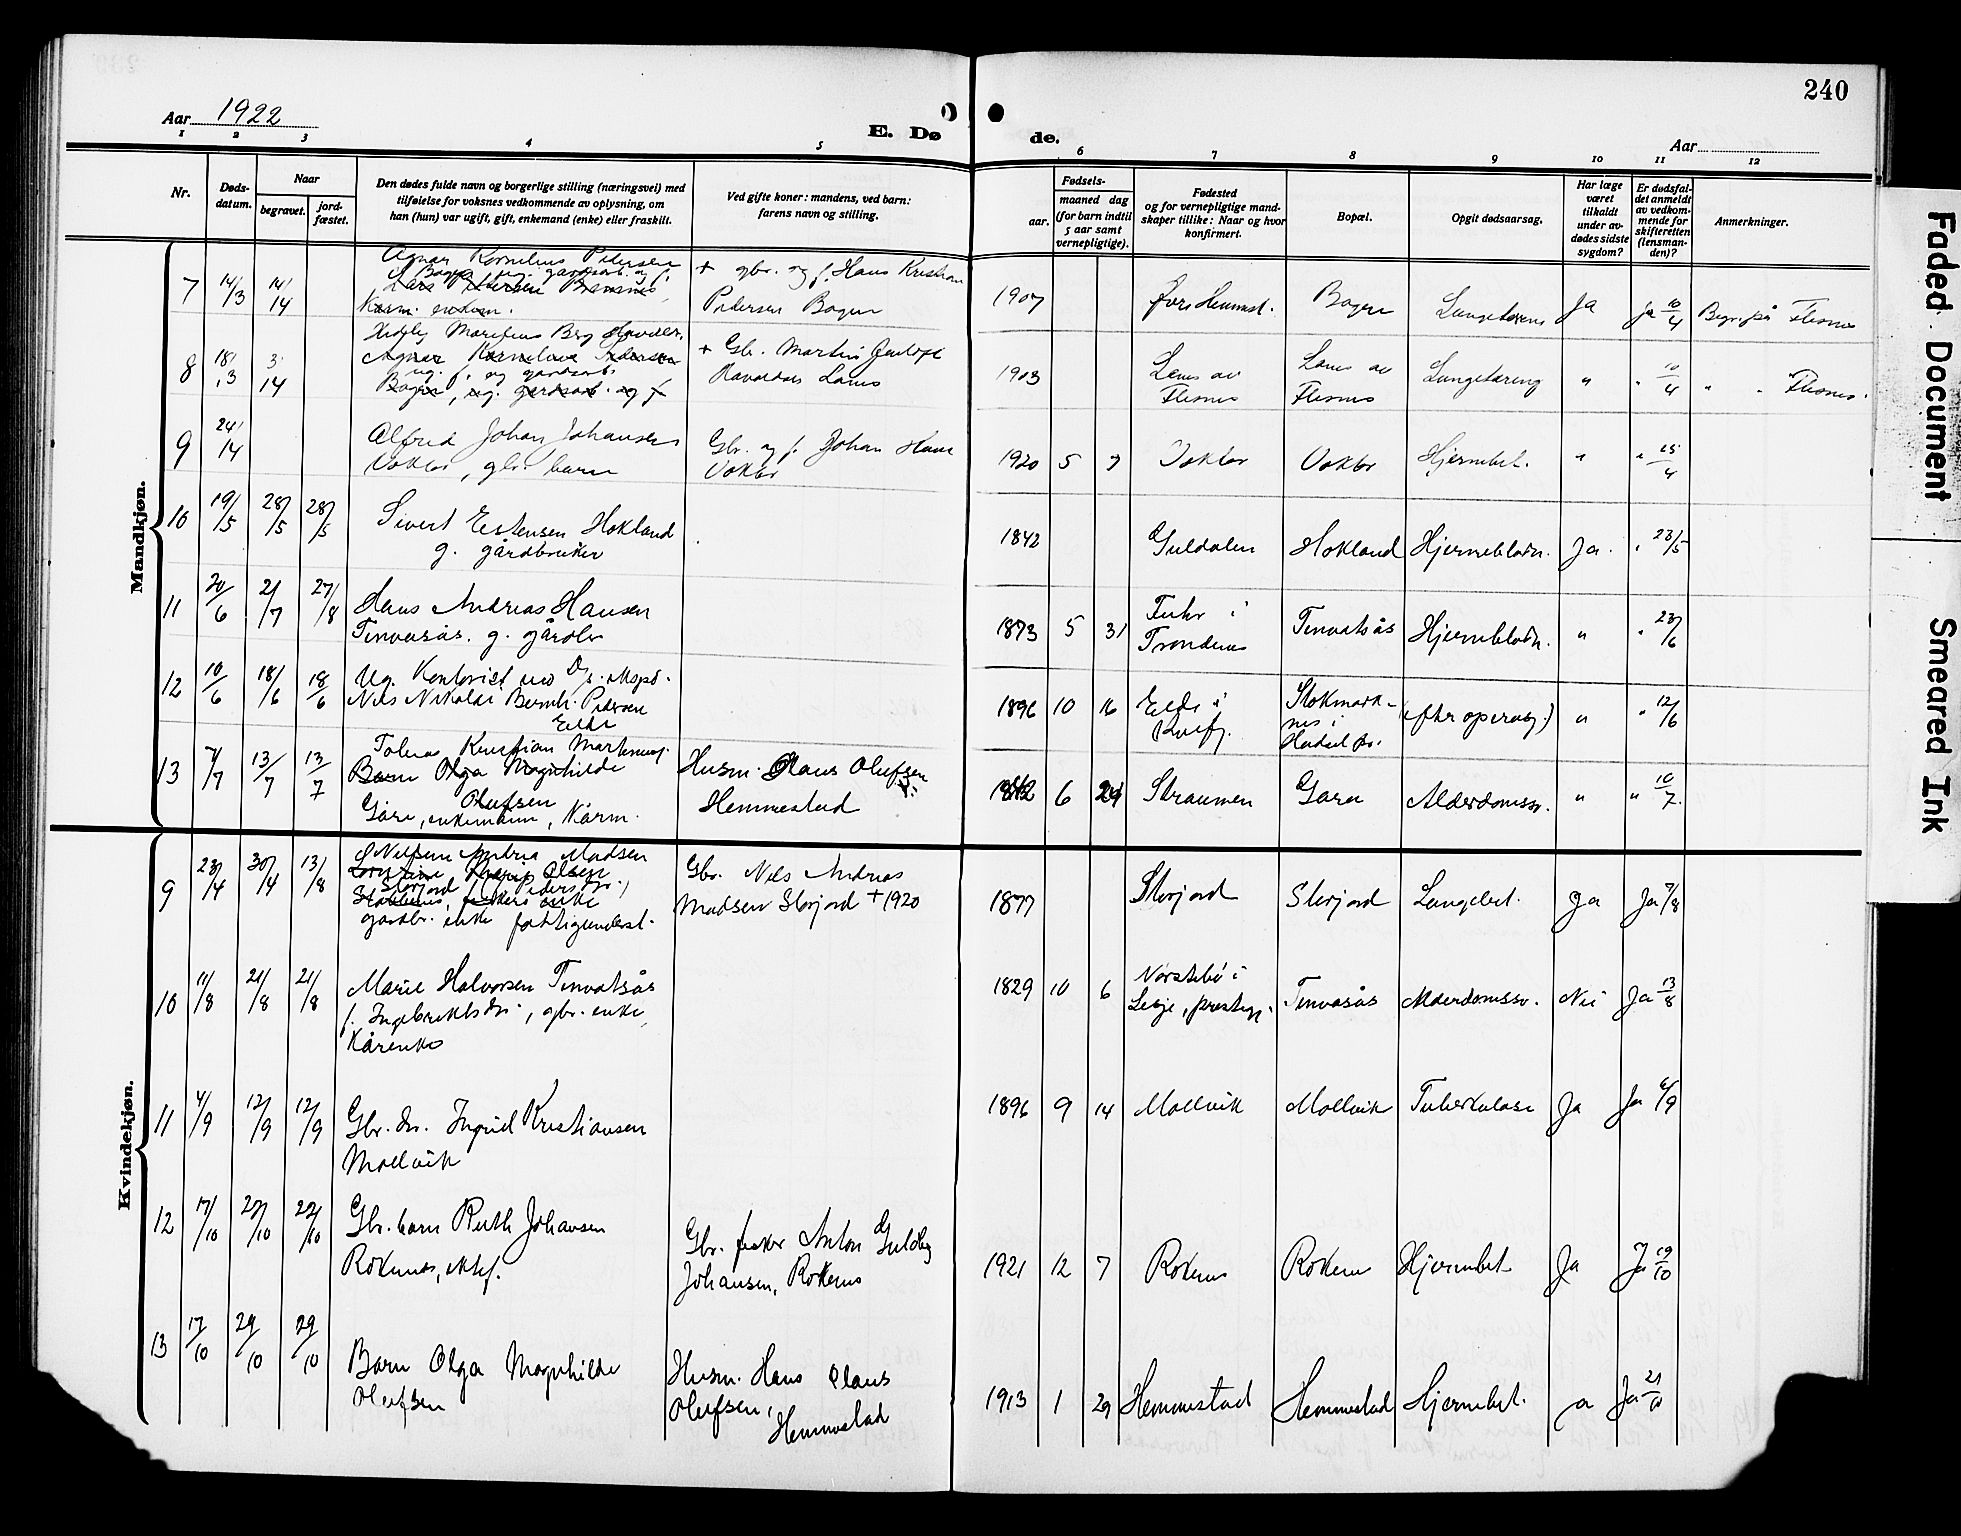 240
Aar 1922
E. Dø de.
Aar
1 2 3 4 5 6 7 8 9 10 11 12
Nr.
Døds-
datum.
Naar
begravet.
jord-
fæstet.
Den dødes fulde navn og borgerlige stilling (næringsvei) med
tilføielse for voksnes vedkommende av oplysning, om
han (hun) var ugift, gift, enkemand (enke) eller fraskilt.
Ved gifte koner: mandens, ved barn:
farens navn og stilling.
Fødsels-
aar.
maaned dag
(for barn indtil
5 aar samt
vernepligtige).
Fødested
og for vernepligtige mand-
skaper tillike: Naar og hvor
konfirmert.
Bopæl.
Opgit dødsaarsag.
Har læge
været
tilkaldt
under av-
dødes sidste
sygdom?
Er dødsfal-
det anmeldt
av vedkom-
mende for
skifteretten
(lensman-
den)?
Anmerkninger.
Mandkjøn.
7 14/3 14/14
Agnar Kornelius Pedersen
Bogen ug. gaardsarb. og f.
Lars Pettersen
+ gbr. og f. Hans Kristian
Pedersen Bogen
1907 Bogen Lungetæring Ja Ja 10/4 Begr. på Flesnes
8 18/13 3/14
Hedley Berg
Agnar Kornelius Pedersen
ug. f. og gaardsarb.
Bogen, ug. gardsarb. og f
+ Gbr. Martin
1903
Lanes av
Flesnes
Lanes av
Flesnes
Lungetæring " " 10/4 " " Flesnes.
9 24/14
Alfred Johan Johansen
Voktor, gbr. barn
Gbr. og f. Johan Hans
Voktor
1920 5 7 Voktor Voktor Hjernebet. " " 25/4
10 19/5 28/5 28/5
Sivert Estensen Hokland
g. gårdbruker
1842 Guldalen Hokland Hjerneblødn. Ja. " 23/5
11 20/6 2/7 27/8
Hans Andreas Hansen
Tenvasås. g. gårdbr
1873 5 31
i
Trondenes
Tenvatsås Hjerneblødn. " " 23/6
12 10/6 18/6 18/6
Ug. Kontorist ved D/s. eksped.
Nils Nikolai Bernh. Pedersen
Elde
1896 10 16
Elde i
Kvæfj.
Stokmark-
nes i
Hadsel
(efter operasj.) " " 12/6
13 7/7 13/7 13/7
Tobias Kristian
Barn Olga Magnhilde
Olufsen
Gåre, enkemann, Kårm.
Husm. Klaus Olufsen
Hemmestad
1842 6 24 Straumen Gara Alderdomssv. " " 10/7.
Kvindekjøn.
9 23/4 30/4 13/8
Madsen
Olsen
Storjord f. Pedersdtr.,
enke
gardbr. enke fattigunderst.
Gbr. Nils Andreas
Madsen Storjord + 1920
1877 Storjord Storjord Lungebet. Ja Ja 7/8
10 11/8 21/8 21/8
Marie Halvorsen Tenvatsås
f. Ingebriktsdtr., gbr. enke,
Kårenke
1829 10 6
Norstebø i
Lesje, prestegj.
Tenvasås Alderdomssv. Nei Ja 13/8
11 4/9 12/9 12/9
Gbr. dtr. Ingrid Kristiansen
Mollvik
1896 9 14 Mollvik Mollvik Tuberkulose Ja Ja 6/9
12 17/10 22/10 22/10
Gbr. barn Ruth Johansen
Røkenes, ektef.
Gbr. fisker Anton Guldbg
Johansen, Røkenes
1921 12 7 Røkenes Røkenes Hjernebet Ja Ja 19/10
13 17/10 29/10 29/10
Barn Olga Magnhilde
Olufsen
Husm. Hans Claus
Olufsen,
Hemmestad
1913 1 29 Hemmestad Hemmestad Hjernebet. Ja 21/10
Faded Document
Smeared Ink